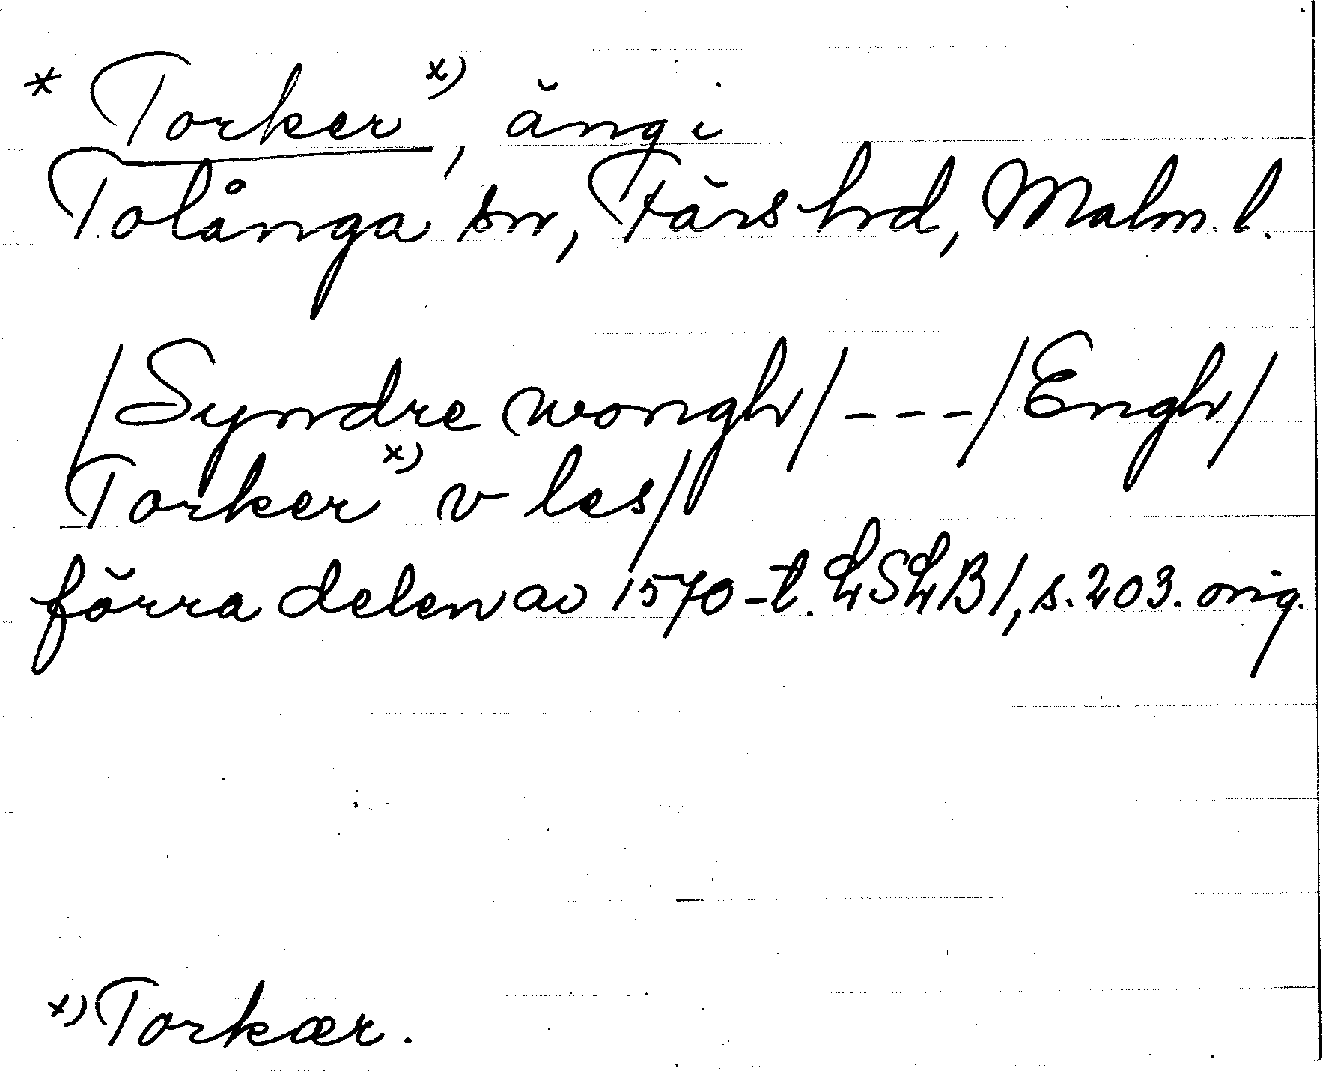 * Torker x), äng i
Tolånga sn, Färs hrd, Malm. l.
/Syndre wongh/ - - - /Engh/
Torker x) v les/
förra delen av 1570-t. LSLB1, s. 203. orig.
x) Torkær.